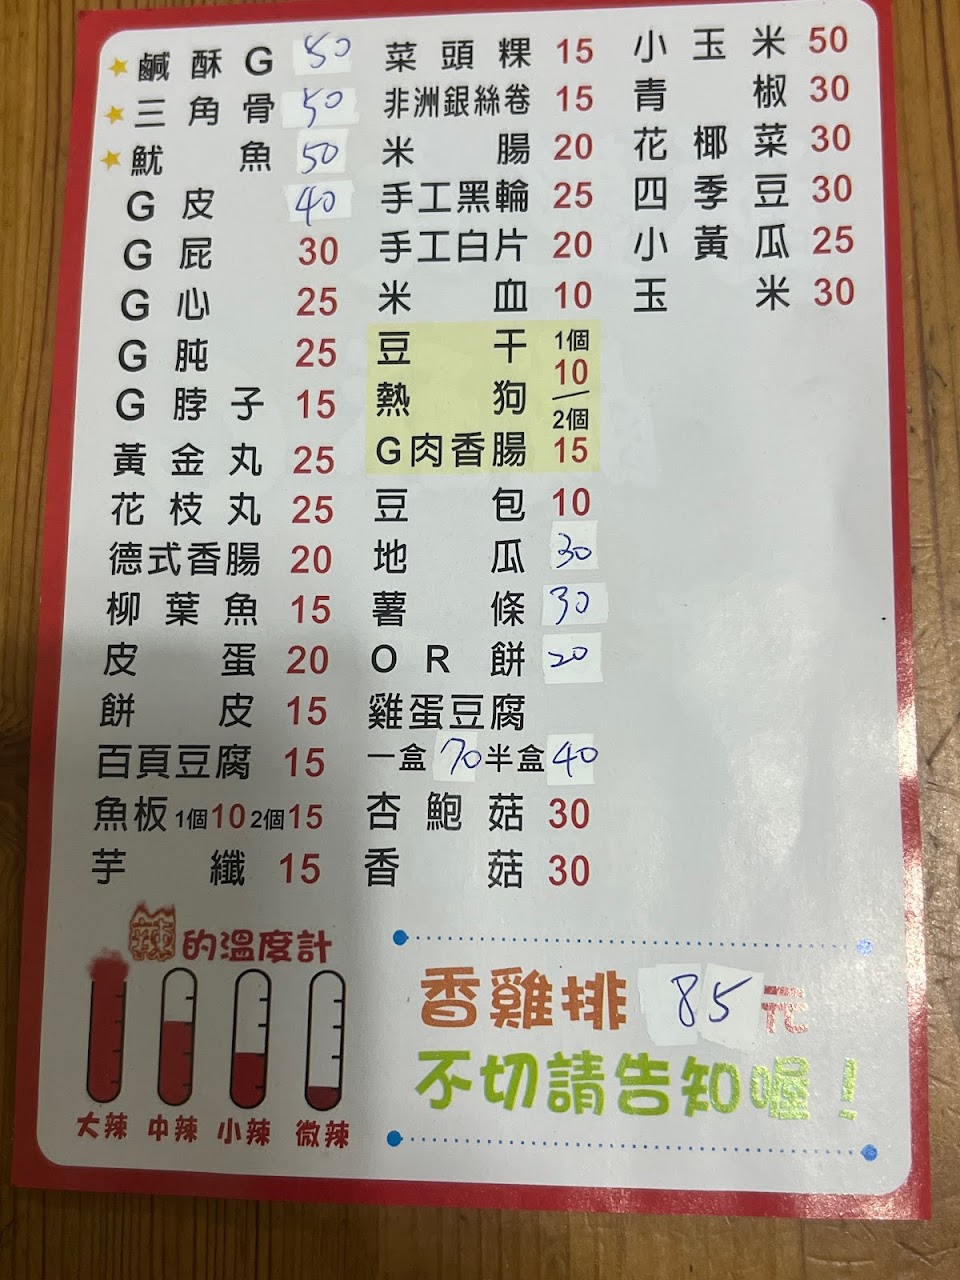 鹹酥G 50
三角骨 50
魷魚 50
G皮 40
G屁 30
G心 25
G肫 25
G脖子 15
黃金丸 25
花枝丸 25
德式香腸 20
柳葉魚 15
皮蛋 20
餅皮 15
百頁豆腐 15
魚板 1個10 2個15
芋纖 15
菜頭粿 15
非洲銀絲卷 15
米腸 20
手工黑輪 25
手工白片 20
米血 10
豆干
熱狗
G肉香腸
1個
10
2個
15
豆包 10
地瓜 30
薯條 30
OR餅 20
雞蛋豆腐
一盒 70 半盒 40
杏鮑菇 30
香菇 30
小玉米 50
青椒 30
花椰菜 30
四季豆 30
小黃瓜 25
玉米 30
辣的溫度計
大辣 中辣 小辣 微辣
香雞排 85元
不切請告知喔！